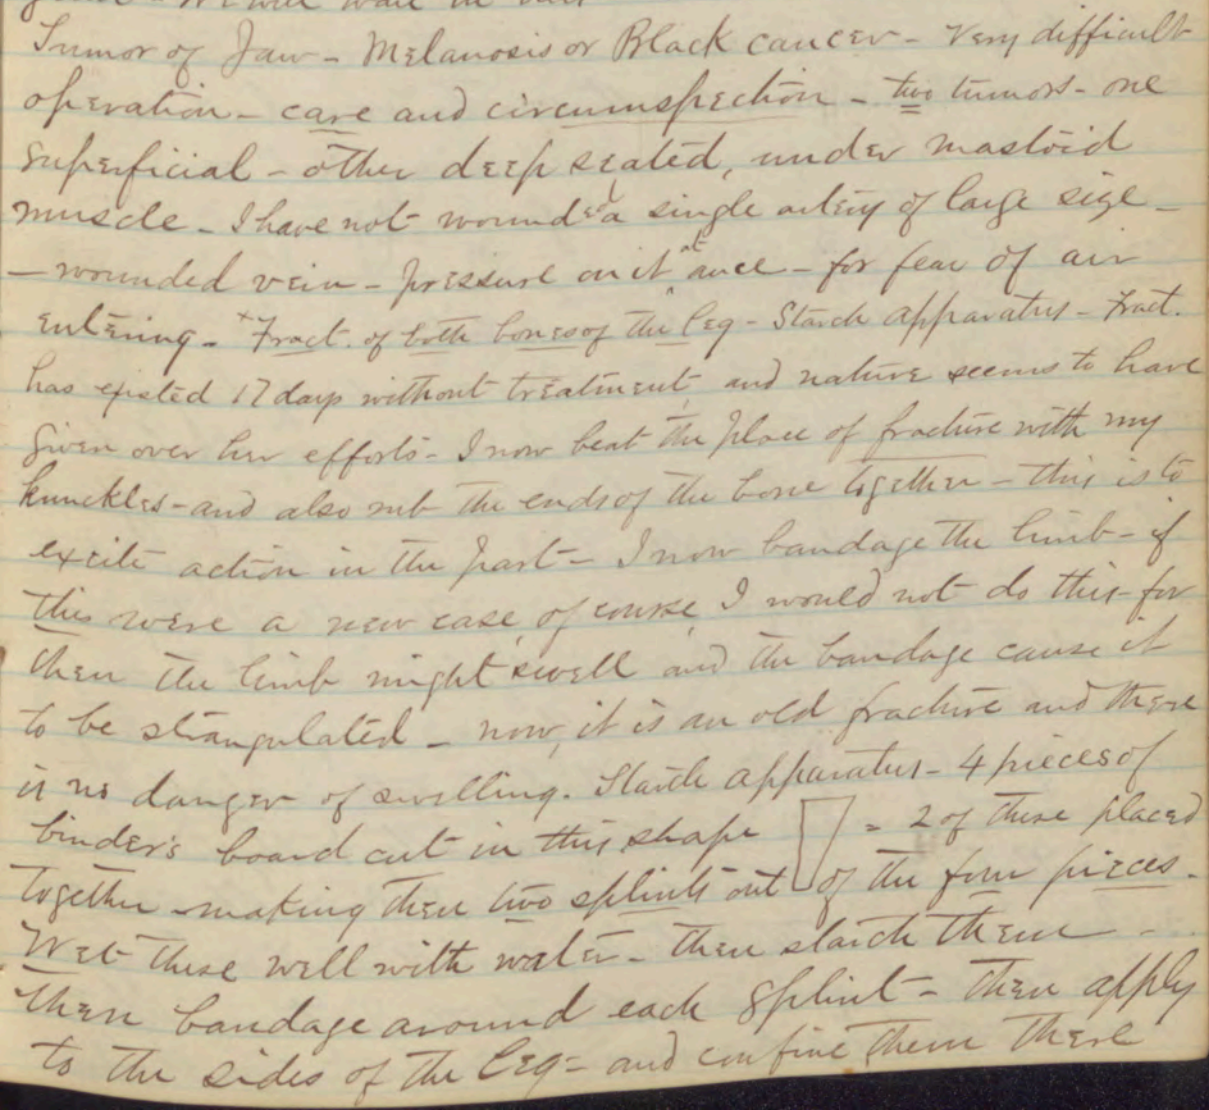 we will wait in
Tumor of Jaw - Melanosis or Black cancer - Very difficult
operation - care and circumspection - two tumors - one
superficial - other deep seated, under mastoid
muscle - I have not wounded a single artery of large size -
- wounded vein - pressure on it at once - for fear of air
entering. - Fract. of both bones of the leg - Starch apparatus - Fract.
has existed 17 days without treatment, and nature seems to have
given over her efforts - I now beat the place of fracture with my
knuckles - and also rub the ends of the bone together - this is to
excite action in the part - I now bandage the limb - if
this were a new case, of course, I would not do this - for
then the limb might swell and the bandage cause it
to be strangulated - now, it is an old fracture and there
is no danger of swelling. Starch apparatus - 4 pieces of
binder's board cut in this shape = 2 of these placed
together - making then two splints out of the four pieces.
Wet these well with water - then starch them -
then bandage around each splint - then apply
to the sides of the leg = and confine them there